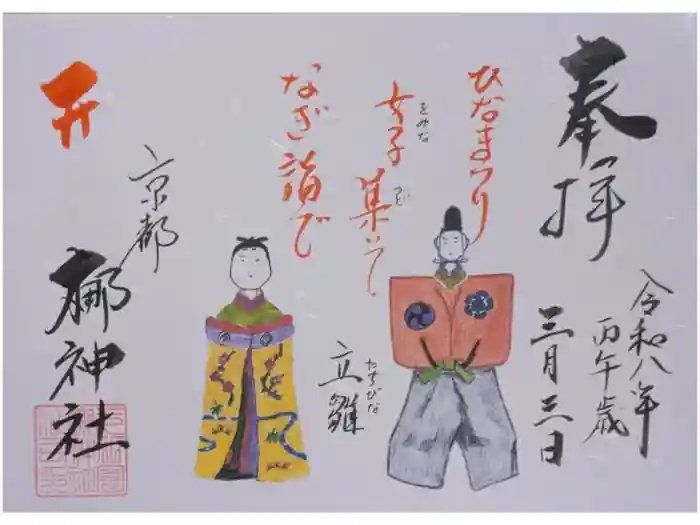 奉拝
令和八年
丙午歳
三月三日
ひなまつり
女子集いて
をみな
つど
なぎ詣で
立雛
たちびな
京都
梛神社